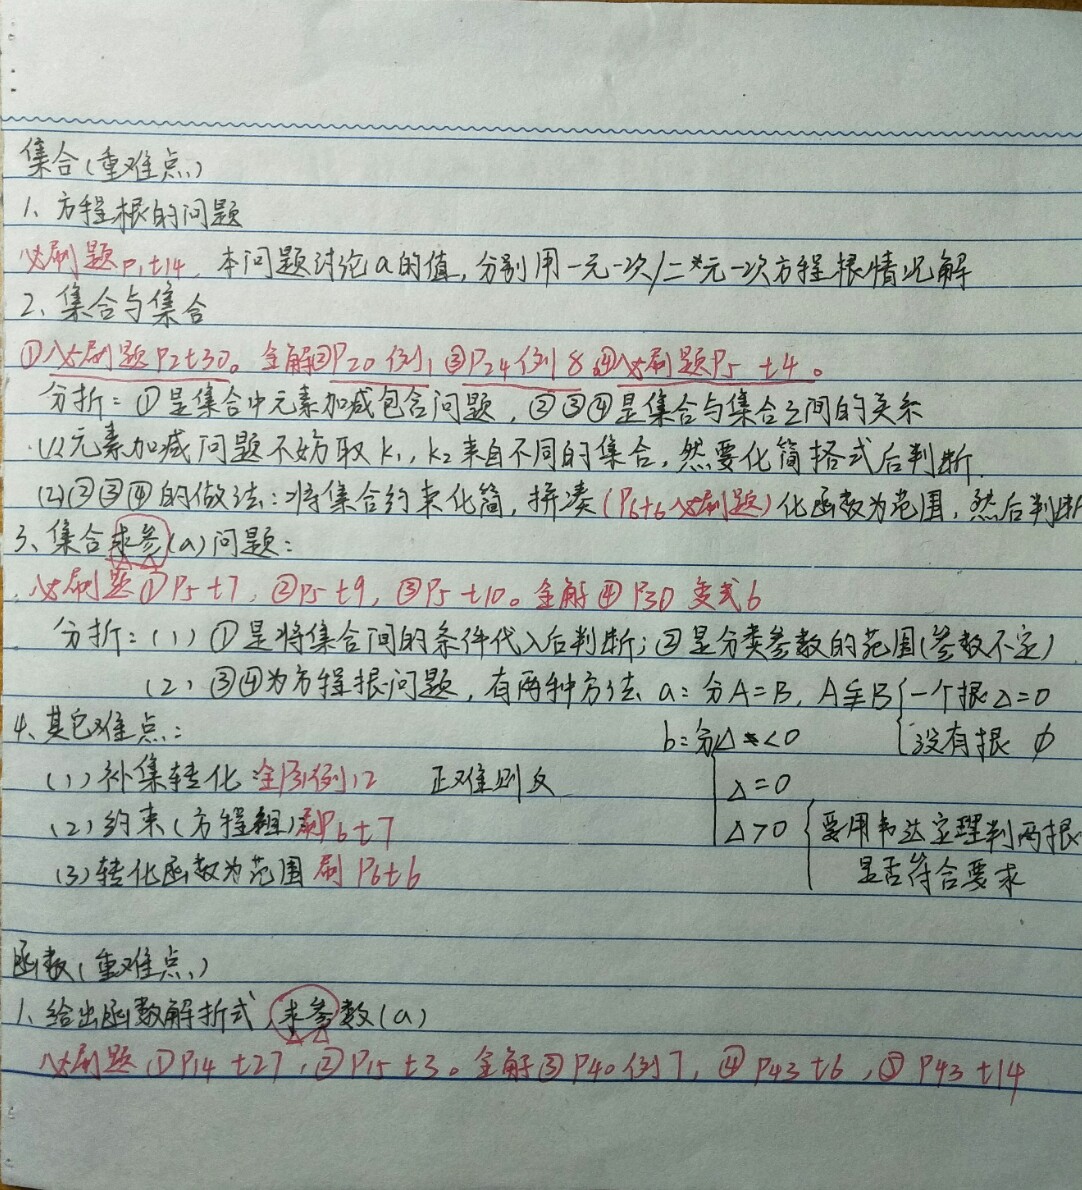 集合(重难点)
1、方程根的问题
必刷题P1t14,本问题讨论a的值,分别用一元一次/二元一次方程根情况解
2、集合与集合
①必刷题P2t30。全解②P20例1③P24例8④必刷题P5 t4。
分折:①是集合中元素加减包含问题,②③④是集合与集合之间的关系
(1)元素加减问题不妨取k1,k2来自不同的集合,然要化简格式后判断.
(2)②③④的做法:将集合约束化简,拼凑(P6t6必刷题)化函数为范围,然后判断
3、集合求参(a)问题:
必刷题①P5t7,②P5t9,③P5t10。全解④P30变式6
分折:(1)①是将集合间的条件代入后判断;②是分类参数的范围(参数不定)
(2)③④为方程根问题,有两种方法a:分A=B,A⫋B{一个根△=0
4、其它难点:
b:分△<0
没有根 ∅
(1)补集转化:全例12 正难则反
△=0
(2)约束(方程组)刷P6t7
△>0{要用韦达定理判两根
(3)转化函数为范围 刷P6t6
是否符合要求
函数(重难点)
1、给出函数解折式,求参数(a)
必刷题①P14 t27,②P15 t3。全解③P40例7,④P43 t6,⑤P43 t14